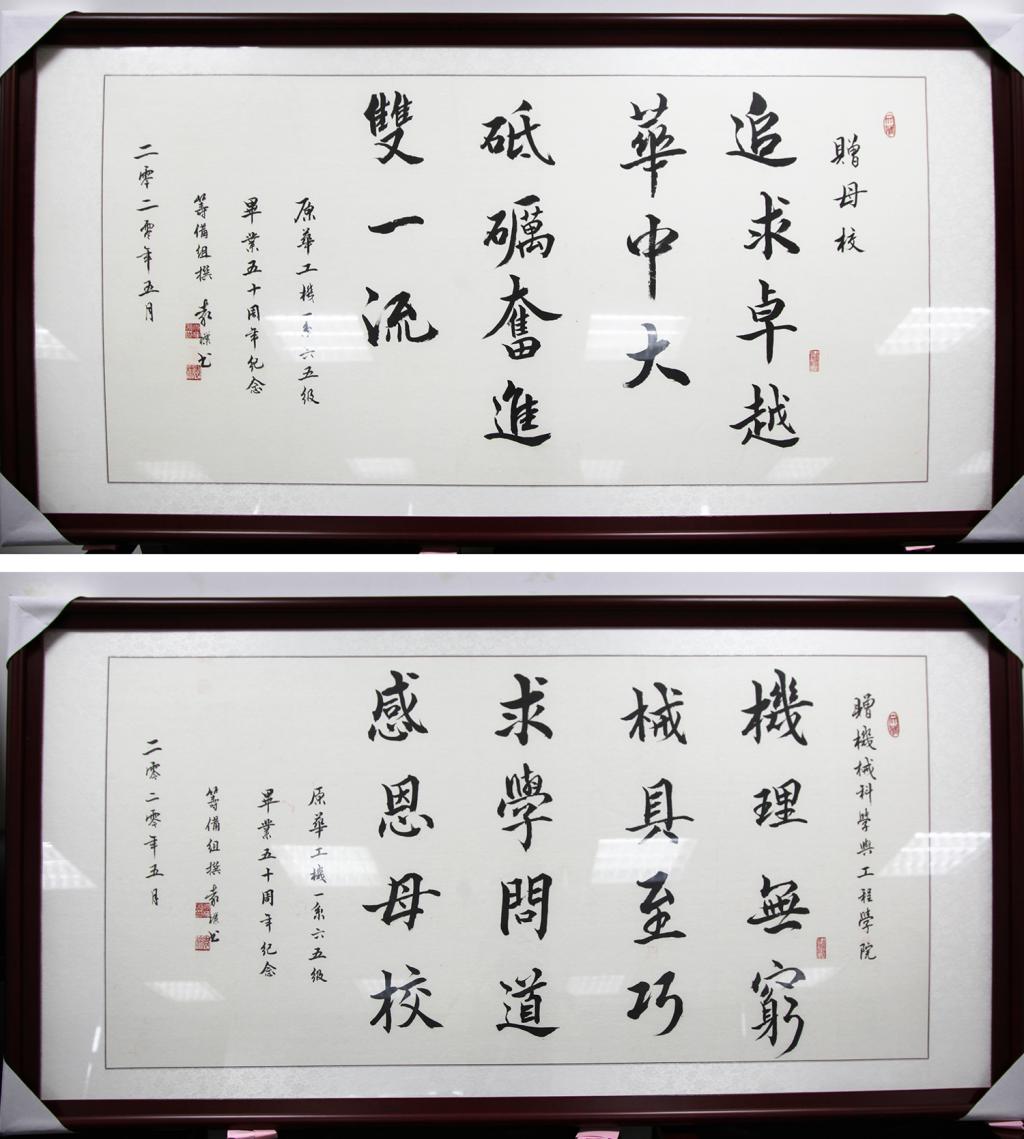 贈母校
追求卓越
華中大
砥礪奮進
雙一流
原華工機一系六五級
畢業五十周年紀念
籌備組撰 袁璞书
二零二零年五月
贈機械科學與工程學院
機理無窮
械具至巧
求學問道
感恩母校
原華工機一系六五級
畢業五十周年紀念
籌備組撰 袁璞书
二零二零年五月